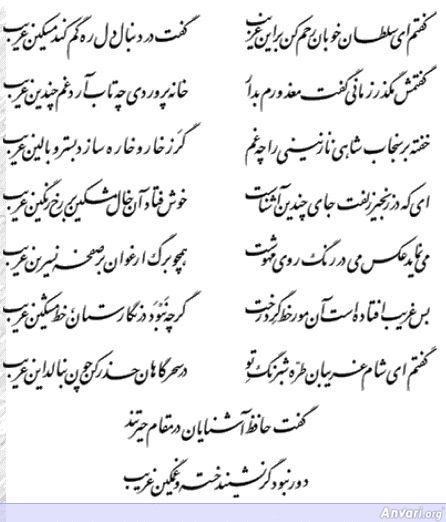 گفتم ای سلطان خوبان رحم کن بر این غریب گفت در دنبال دل ره گم کند مسکین غریب
گفتمش مگذر زمانی گفت معذورم بدار خانه پروردی چه تاب آرد غم چندین غریب
خفته بر سنجاب شاهی نازنینی را چه غم گر ز خار و خاره سازد بستر و بالین غریب
ای که در زنجیر زلفت جای چندین آشناست خوش فتاد آن خال مشکین بر رخ رنگین غریب
می نماید عکس می در رنگ روی مه وشت همچو برگ ارغوان بر صفحه نسرین غریب
بس غریب افتاده است آن مور خط گرد رخت گرچه نبود در نگارستان خط مشکین غریب
گفتم ای شام غریبان طره شبرنگ تو در سحرگاهان حذر کن چون بنالد این غریب
گفت حافظ آشنایان در مقام حیرتند
دور نبود گر نشیند خسته و غمگین غریب
Anvari.org